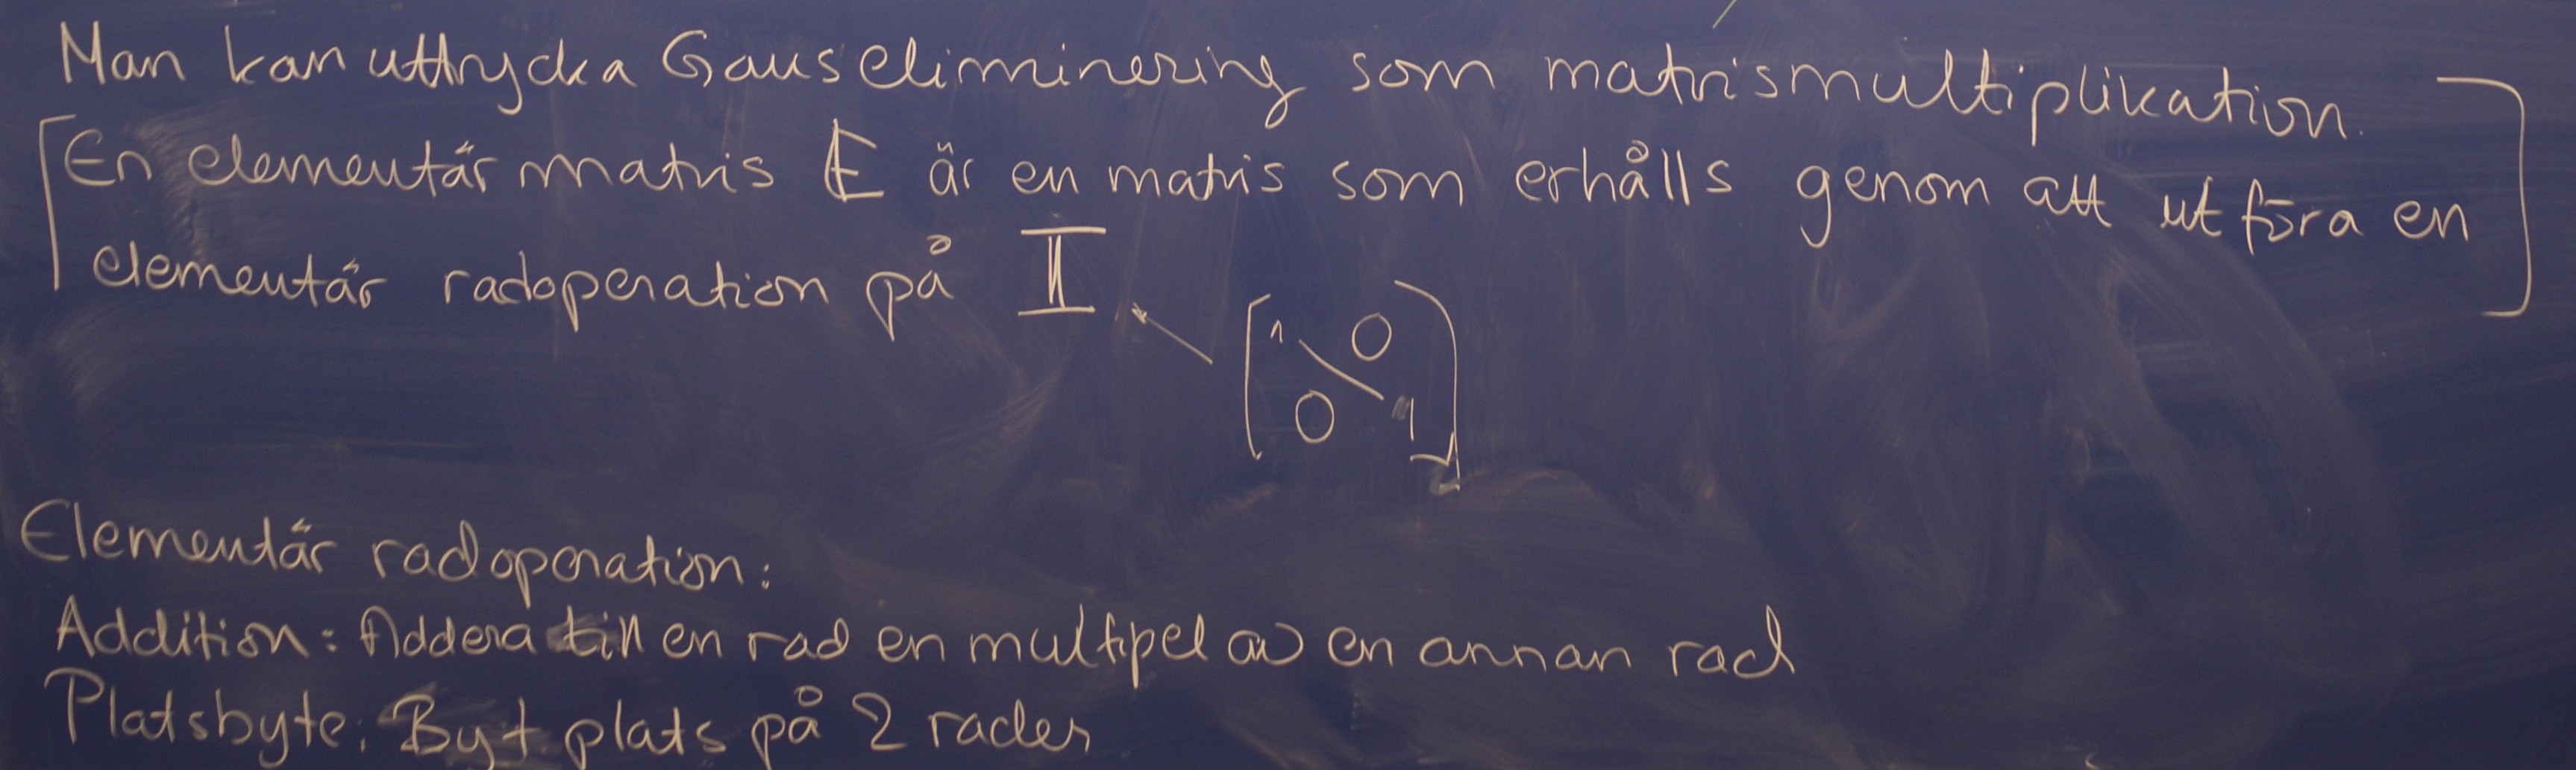 Man kan uttrycka Gauseliminering som matrismultiplikation.
En elementär matris E är en matris som erhålls genom att utföra en
elementär radoperation på I
1 0
0 1
Elementär radoperation:
Addition: Addera till en rad en multipel av en annan rad
Platsbyte: Byt plats på 2 rader